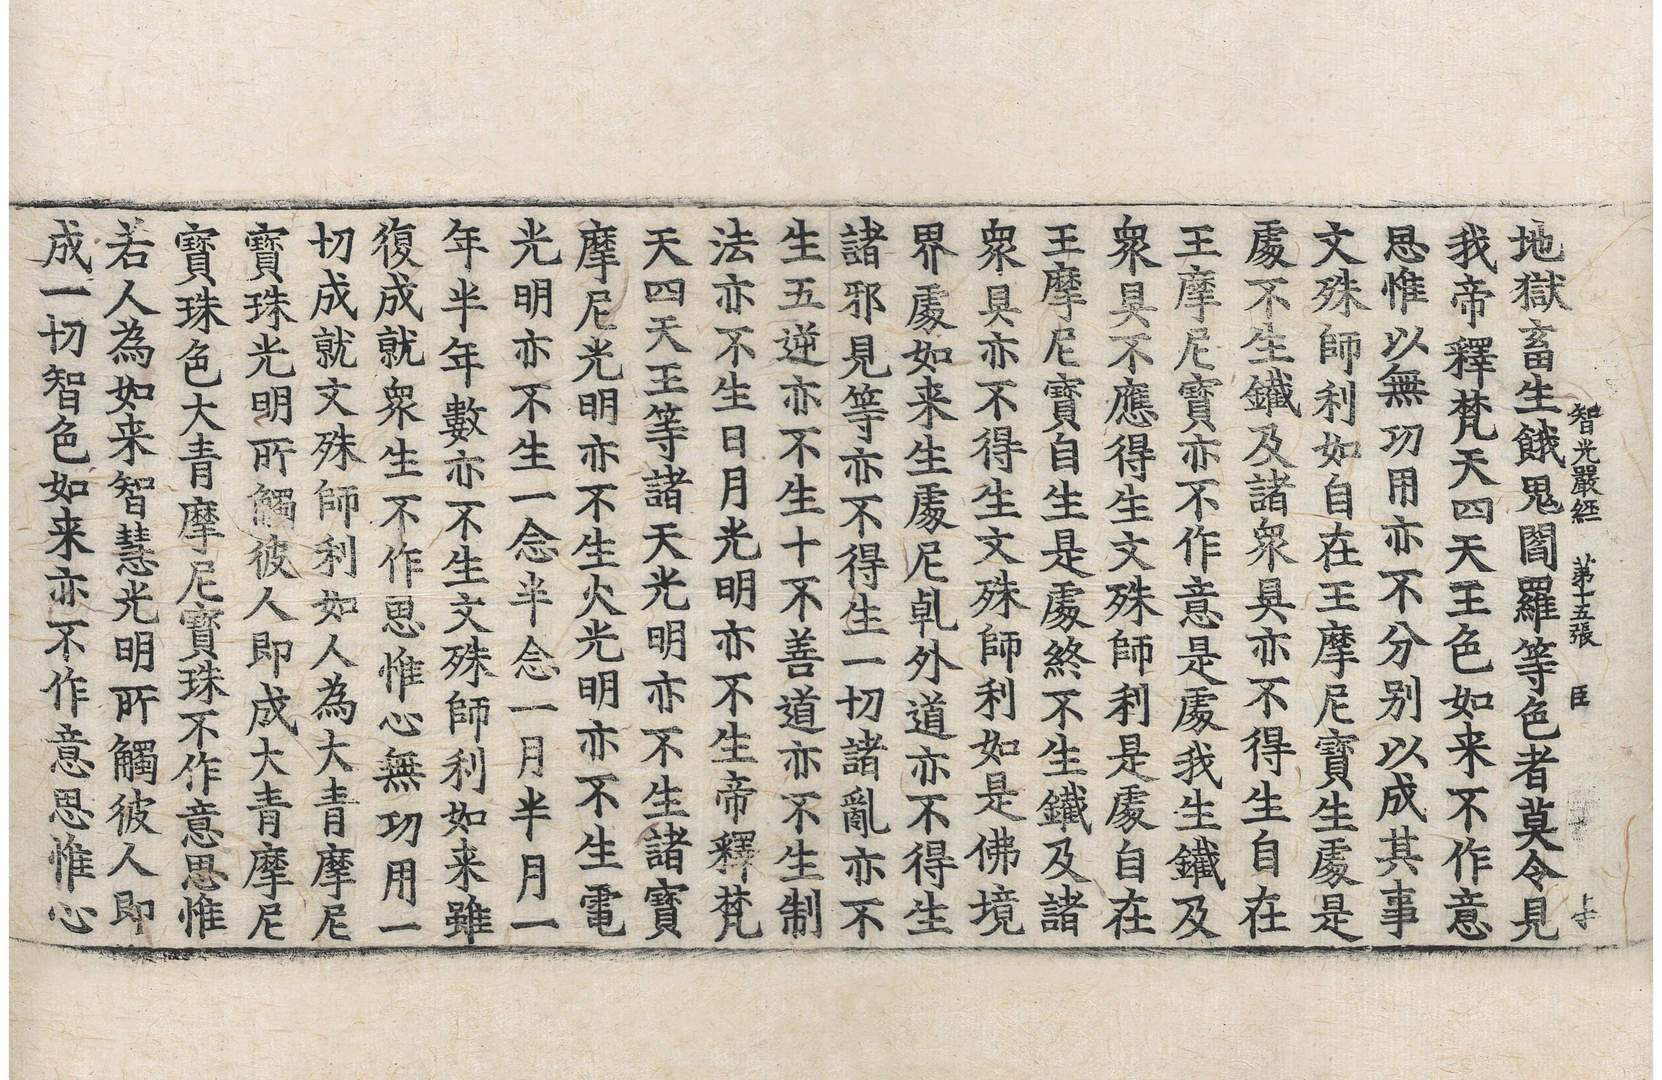 智光嚴經 第十五張 臣
地獄畜生餓鬼閻羅等色者莫令見
我帝釋梵天四天王色如来不作意
思惟以無功用亦不分别以成其事
文殊師利如自在王摩尼寶生處是
處不生鐵及諸衆具亦不得生自在
王摩尼寶亦不作意是處我生鐵及
衆具不應得生文殊師利是處自在
王摩尼寶自生是處終不生鐵及諸
衆具亦不得生文殊師利如是佛境
界處如来生處尼乹外道亦不得生
諸邪見等亦不得生一切諸亂亦不
生五逆亦不生十不善道亦不生制
法亦不生日月光明亦不生帝釋梵
天四天王等諸天光明亦不生諸寶
摩尼光明亦不生火光明亦不生電
光明亦不生一念半念一月半月一
年半年年數亦不生文殊師利如来雖
復成就衆生不作思惟心無功用一
切成就文殊師利如人為大青摩尼
寶珠光明所觸彼人即成大青摩尼
寶珠色大青摩尼寶珠不作意思惟
若人為如来智慧光明所觸彼人即
成一切智色如来亦不作意思惟心